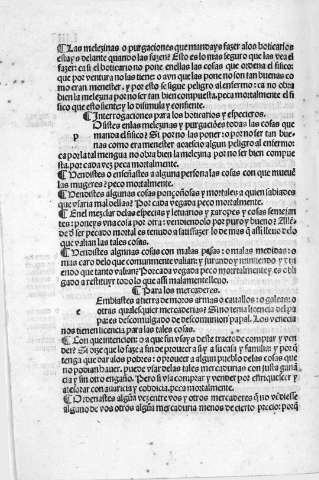 ¶ Las melezinas o purgaciones que mandays fazer alos boticarios
estay s delante quando las fazen? Esto es lo mas seguro que las vea el
fazer: ca si el boticario no pone en ellas las cosas que ordena el fisico:
que por ventura no las tiene: o avn que las pone no son tan buenas co
mo eran menester. y por esto se sigue peligro al enfermo: ca no obra
bien la melezina por no ser tan bien compuesta. peca mortalmente el fi
sico que esto siente y lo disimula y consiente.
¶ Interrogaciones para los boticarios y especieros.
Pusistes en las melezinas y purgaciones todas las cosas que
p manda el fisico? Si por no las poner: o por no ser tan bue-
nas como era menester acaescio algun peligro al enfermo:
ca por la tal mengua no obra bien la melezina por no ser bien compue
sta. por cada vez peca mortalmente.
¶ Vendistes o enseñastes a alguna persona las cosas con que mueuē
las mugeres? peco mortalmente.
¶ Vendistes algunas cosas ponçoñosas y mortales a quien sabiades
que vsaria mal dellas? Por cada vegada peco mortalmente.
¶ En el mezclar delas especias y letuarios y xaropes y cosas semejan
tes: pones vna cosa por otra: vendiendolo por puro y bueno? Allē
de ser pecado mortal es tenudo a satisfazer lo de mas q̄ assi lleuo delo
que valian las tales cosas.
¶ Vendistes algunas cosas con malas pesas: o malas medidas: o
mas caro delo que comunmente valian y jurando y mintiendo y
endo que tanto valian? Por cada vegada peco mortalmente y es obli
gado a restituyr todo lo que assi malamente lleuo.
¶ Para los mercaderes.
Embiastes a tierra de moros armas o cauallos: o galeas: o
e otras qualesquier mercaderias? Sino tenia licencia del pa
pa es descomulgado de descomunion papal. Los venecia
nos tienen licencia para las tales cosas.
¶ Con que intencion: o a que fin vsays deste tracto de comprar y ven
der? Si dize que lo faze a fin de proueer a si y a su casa y familia: y por q̄
tenga que dar alos pobres: o proueer a algun pueblo delas cosas que
no podian hauer. puede vsar delas tales mercaderias con justa ganā
cia y sin otro engaño. Pero si vsa comprar y vender por enriquescer y
atesorar con auaricia y cobdicia. peca mortalmente.
¶ Ordenastes algūa vez entre vos y otros mercaderes q̄ no vēdiesse
alguno de vos otros algūa mercaderia menos de cierto precio: porq̄